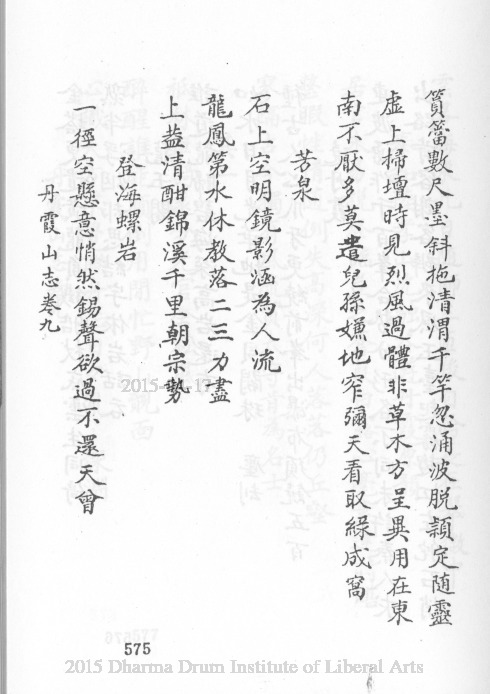 篔簹數尺墨斜拖清渭千竿忽涌波脫穎定随靈
虛上掃壇時見烈風過體非草木方呈異用在東
南不厭多莫遣兒孫嫌地窄彌天看取綠成窩
芳泉
石上空明鏡影涵為人流
龍鳳第水休教落二三力盡
上益清酣錦溪千里朝宗勢
登海螺岩
一徑空懸意悄然錫聲欲過不還天曾
丹霞山志卷九
575
2015 Dharma Drum Institute of Liberal Arts